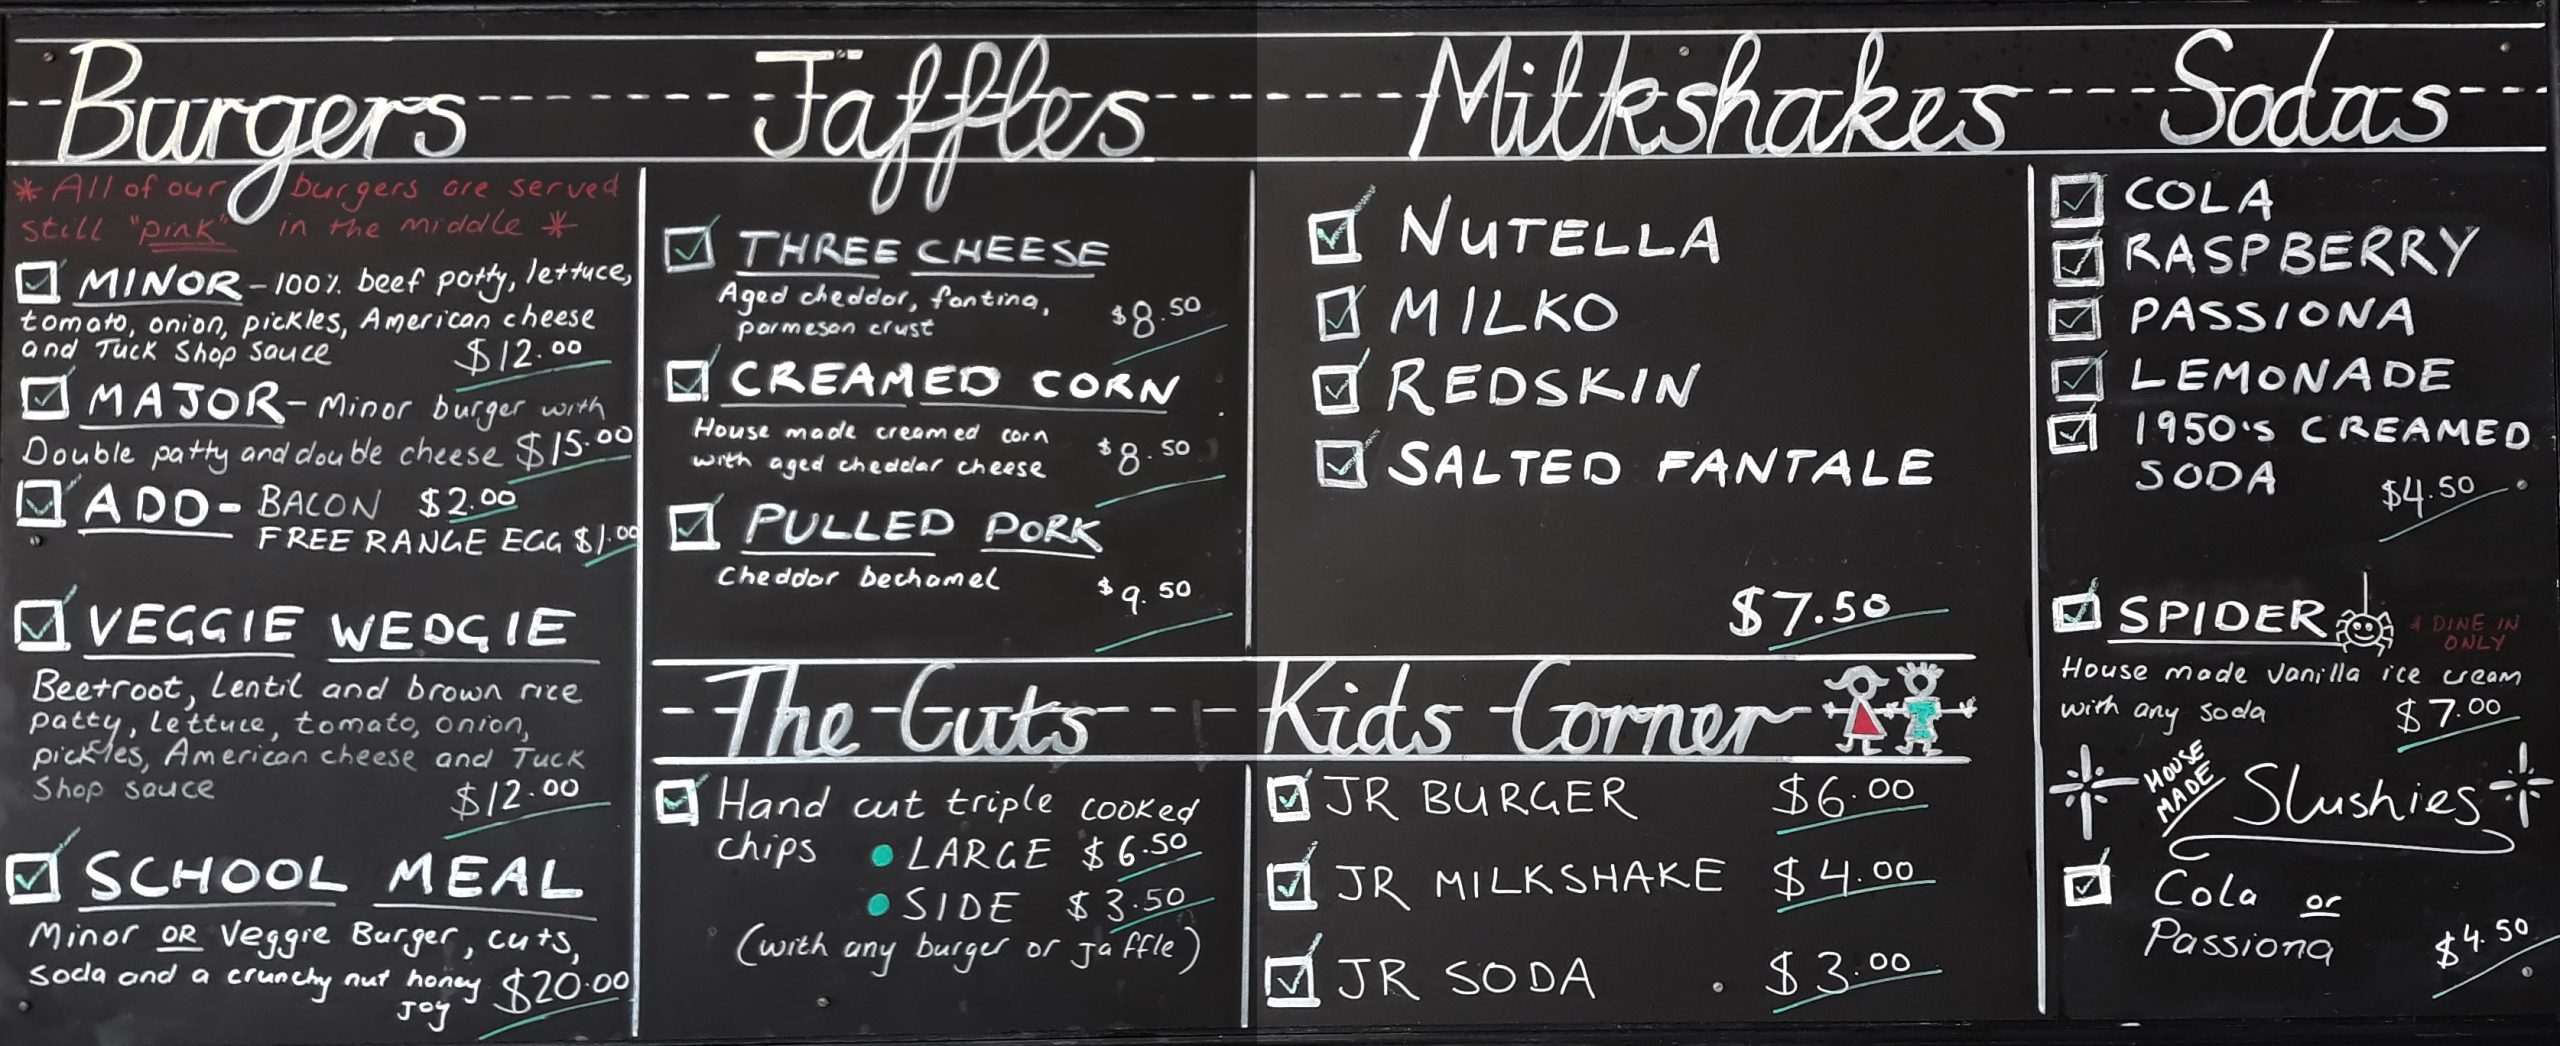 Burgers
*All of our burgers are served
still "pink" in the middle*
MINOR - 100% beef patty, lettuce,
tomato, onion, pickles, American cheese
and Tuck Shop sauce $12.00
MAJOR - Minor burger with
Double patty and double cheese $15.00
ADD - BACON $2.00
FREE RANGE EGG $1.00
VEGGIE WEDGIE
Beetroot, Lentil and brown rice
patty, lettuce, tomato, onion,
pickles, American cheese and Tuck
Shop sauce $12.00
SCHOOL MEAL
Minor OR Veggie Burger, cuts,
soda and a crunchy nut honey
joy $20.00
Jaffles
THREE CHEESE
Aged cheddar, fontina,
parmesan crust $8.50
CREAMED CORN
House made creamed corn
with aged cheddar cheese $8.50
PULLED PORK
Cheddar bechamel $9.50
The Cuts
Hand cut triple cooked
chips • LARGE $6.50
• SIDE $3.50
(with any burger or jaffle)
Milkshakes
NUTELLA
MILKO
REDSKIN
SALTED FANTALE
$7.50
Kids Corner
JR BURGER $6.00
JR MILKSHAKE $4.00
JR SODA $3.00
Sodas
COLA
RASPBERRY
PASSIONA
LEMONADE
1950's CREAMED
SODA $4.50
SPIDER * DINE IN
ONLY
House made vanilla ice cream
with any soda $7.00
HOUSE
MADE
Slushies
Cola or
Passiona $4.50